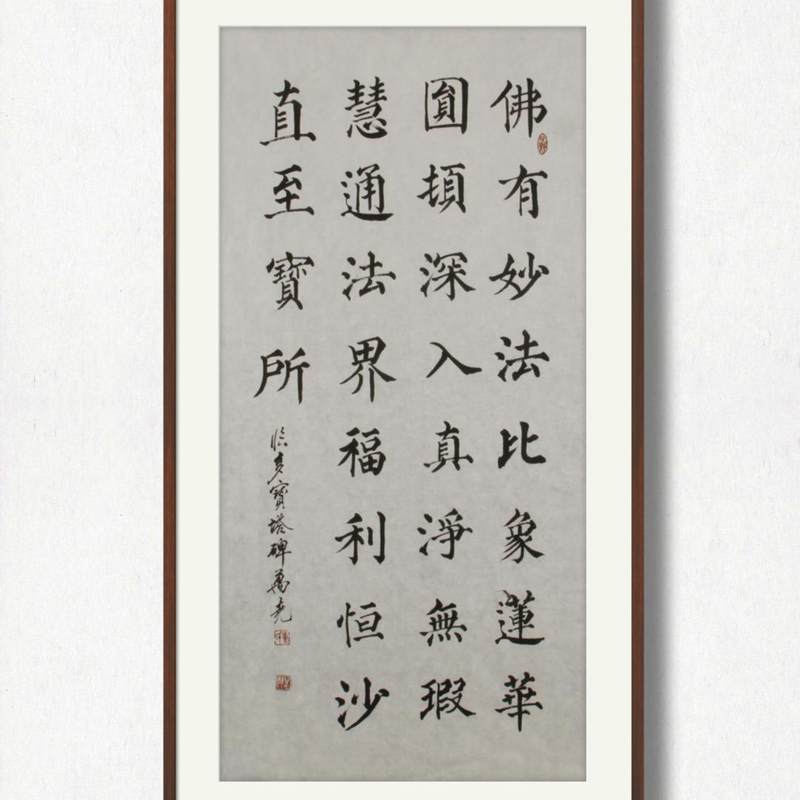 佛有妙法比象蓮華
圓頓深入真淨無瑕
慧通法界福利恒沙
直至寶所
臨多寶塔碑